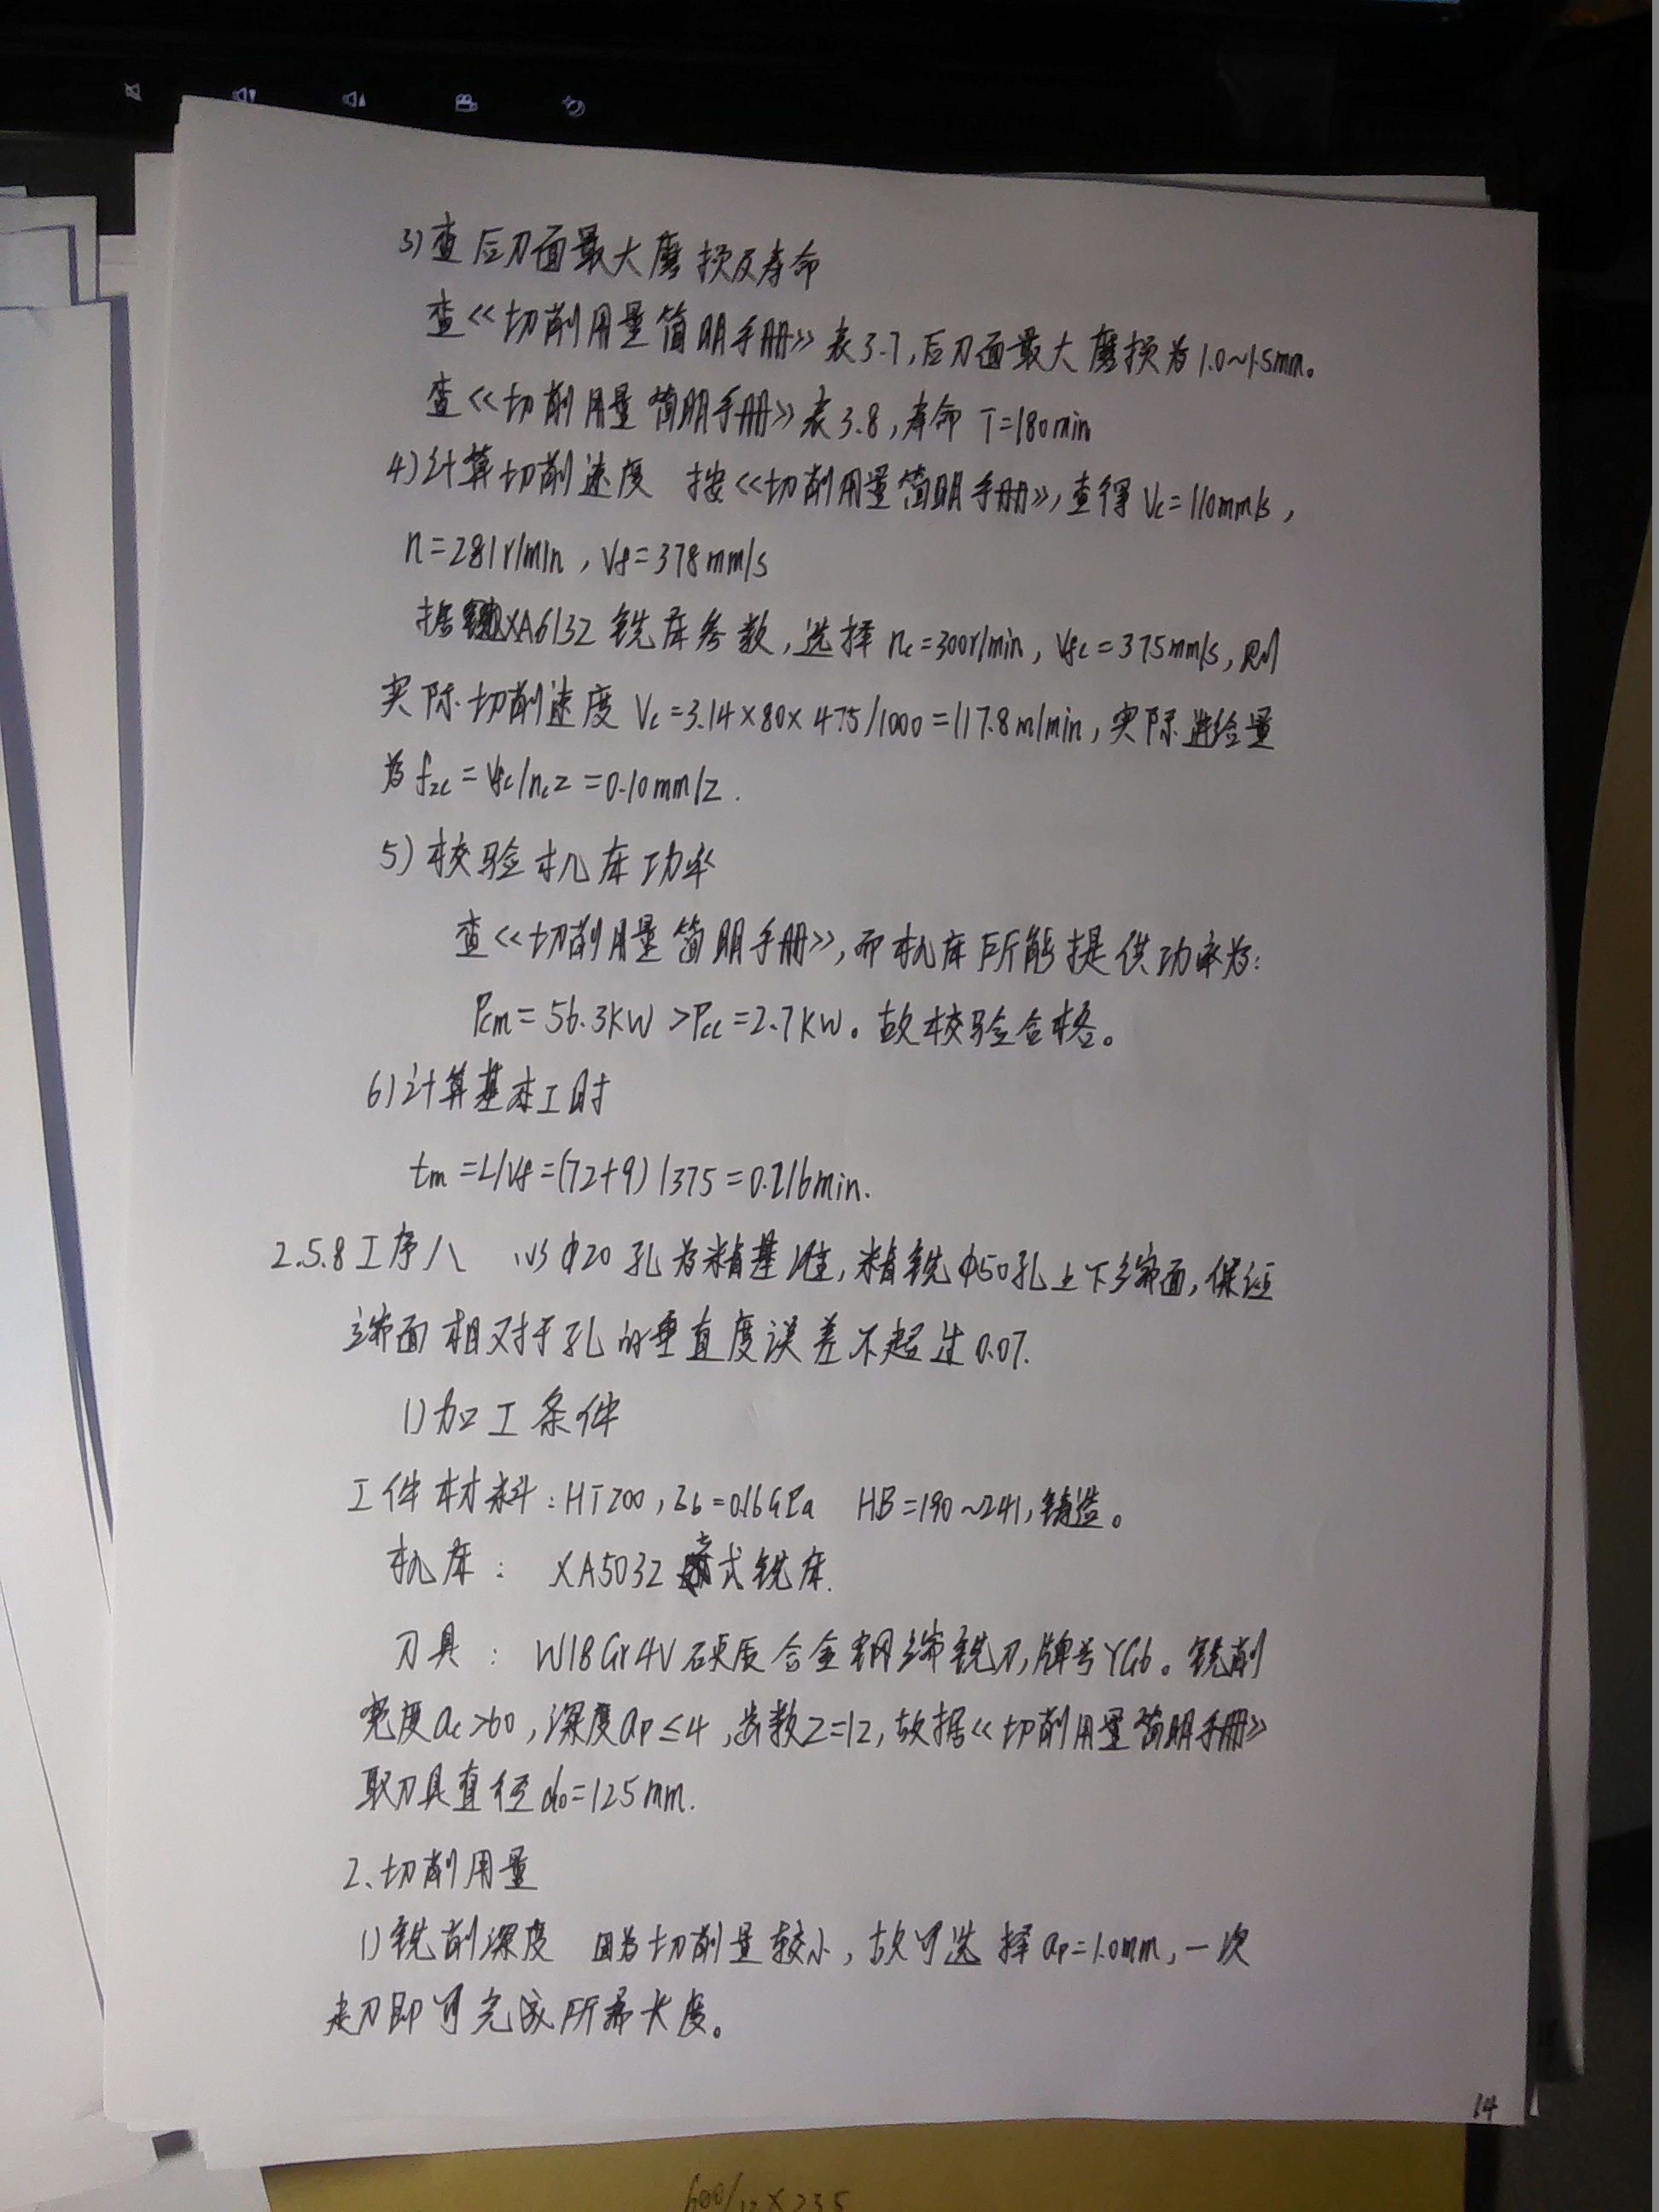 3)查后刀面最大磨损及寿命
查《切削用量简明手册》表3.7,后刀面最大磨损为1.0~1.5mm。
查《切削用量简明手册》表3.8,寿命T=180min
4)计算切削速度 按《切削用量简明手册》,查得Vc=110mm/s,
n=281r/min,Vf=378mm/s
据XA6132铣床参数,选择nc=300r/min,Vfc=375mm/s,则
实际切削速度Vc=3.14×80×475/1000=117.8m/min,实际进给量
为fzc=Vfc/ncz=0.10mm/z.
5)校验机床功率
查《切削用量简明手册》,而机床所能提供功率为:
Pcm=56.3KW>Pcc=2.7KW。故校验合格。
6)计算基本工时
tm=L/Vf=(72+9)/375=0.216min.
2.5.8工序八 以φ20孔为精基准,精铣φ50孔上下端面,保证
端面相对于孔的垂直度误差不超过0.07.
1)加工条件
工件材料:HT200,δb=0.16GPa HB=190~241,铸造。
机床: XA5032式铣床.
刀具: W18Cr4V硬质合金钢端铣刀,牌号YG6。铣削
宽度ae>60,深度ap≤4,齿数Z=12,故据《切削用量简明手册》
取刀具直径do=125mm.
2、切削用量
1)铣削深度 因为切削量较小,故可选择ap=1.0mm,一次
走刀即可完成所需长度。
14